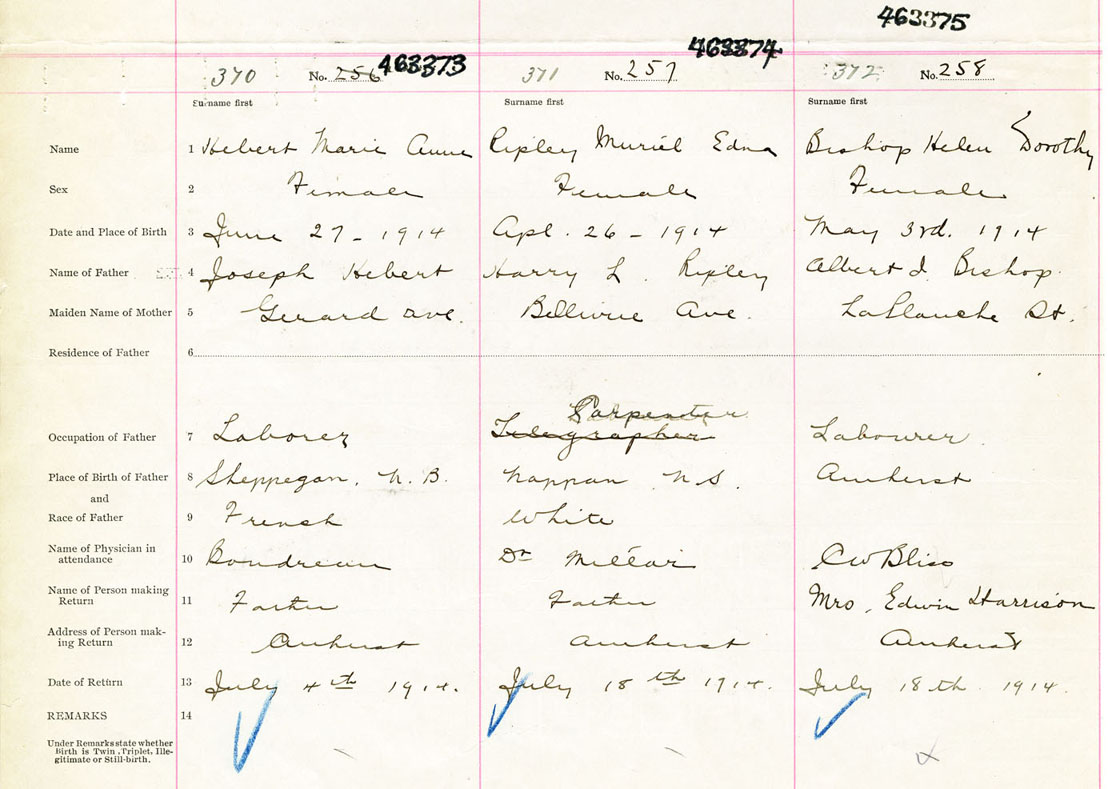 463375
463373 463374
370 No. 256 371 No. 257 372 No. 258
Surname first Surname first Surname first
Name 1 Hebert Marie Anne Ripley Muriel Edna Bishop Helen Dorothy
Sex 2 Female Female Female
Date and Place of Birth 3 June 27 - 1914 Apl. 26 - 1914 May 3rd. 1914
Name of Father 4 Joseph Hebert Harry L. Ripley Albert J. Bishop.
Maiden Name of Mother 5 Gerard Ave. Bellevue Ave. LaPlanche St.
Residence of Father 6
Carpenter
Occupation of Father 7 Laborer Telegrapher Labourer.
Place of Birth of Father 8 Sheppegan, N.B. Nappan N.S. Amherst
and
Race of Father 9 French White
Name of Physician in
attendance 10 Boudreau Dr Millar CW Bliss
Name of Person making
Return 11 Father Father Mrs. Edwin Harrison
Address of Person mak-
ing Return 12 Amherst Amherst Amherst
Date of Return 13 July 4th 1914. July 18th 1914. July 18th. 1914.
REMARKS 14
Under Remarks state whether
Birth is Twin, Triplet, Ille-
gitimate or Still-birth.